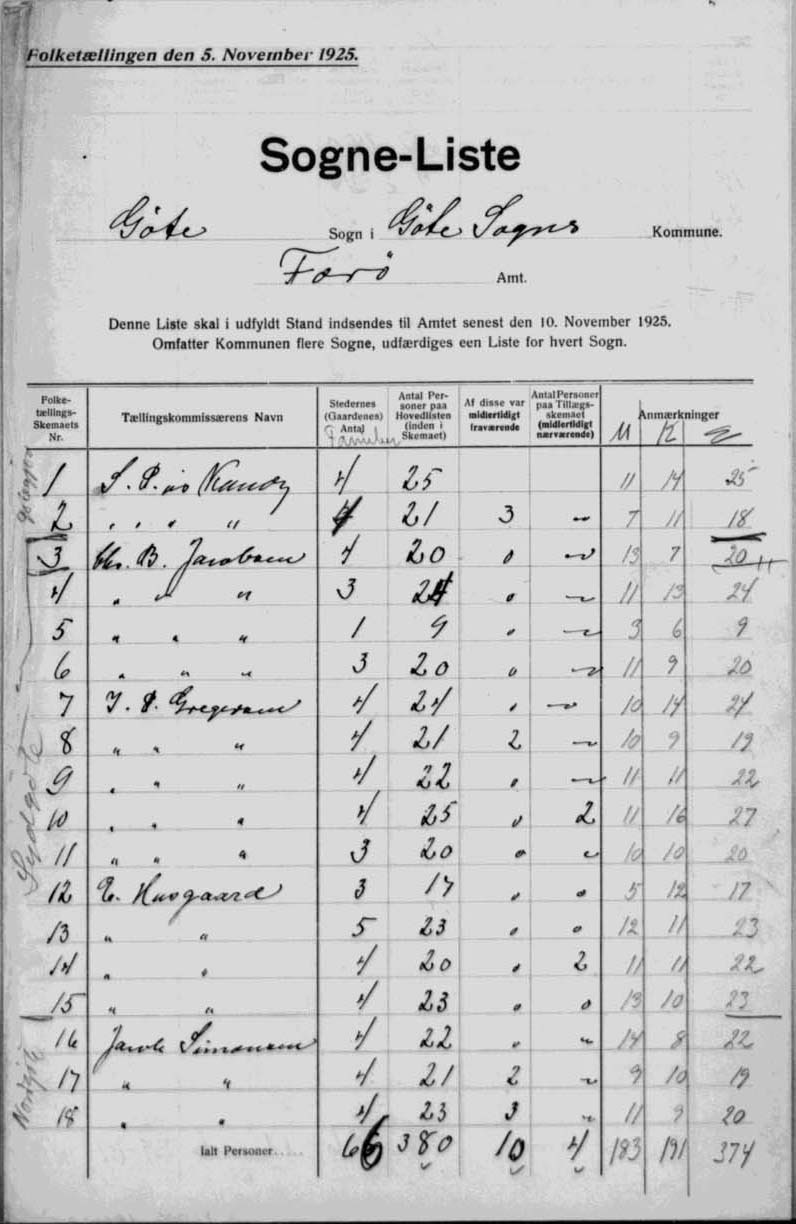 Folketællingen den 5. November 1925.
Sogne-Liste
Göte Sogn i Göte Sogns Kommune.
Færö Amt.
Denne Liste skal i udfyldt Stand indsendes til Amtet senest den 10. November 1925.
Omfatter Kommunen flere Sogne, udfærdiges een Liste for hvert Sogn.
Folke-tællings-Skemaets Nr. Tællingskommissærens Navn Stedernes (Gaardenes) Antal Familier Antal Personer paa Hovedlisten (inden i Skemaet) Af disse var midlertidigt fraværende Antal Personer paa Tillægsskemaet (midlertidigt nærværende) Anmærkninger
M K
1 S. P. 4 25 11 14 25
2 " " " " 4 21 3 " 7 11 18
3 Chr. B. Jacobsen 4 20 0 " 13 7 20
4 " " " 3 24 0 " 11 13 24
5 " " " 1 9 " " 3 6 9
6 " " " 3 20 0 " 11 9 20
7 J. P. Gregersen 4 24 " " 10 14 24
8 " " " 4 21 2 " 10 9 19
9 " " " 4 22 0 " 11 11 22
10 " " " 4 25 0 2 11 16 27
11 " " " 3 20 0 " 10 10 20
12 E. Husgaard 3 17 0 0 5 12 17
13 " " 5 23 0 0 12 11 23
14 " " 4 20 0 2 11 11 22
15 " " 4 23 0 0 13 10 23
16 Jacob Simonsen 4 22 0 " 14 8 22
17 " " 4 21 2 " 9 10 19
18 " " 4 23 3 " 11 9 20
Ialt Personer..... 66 380 10 4 183 191 374
Sydgöte